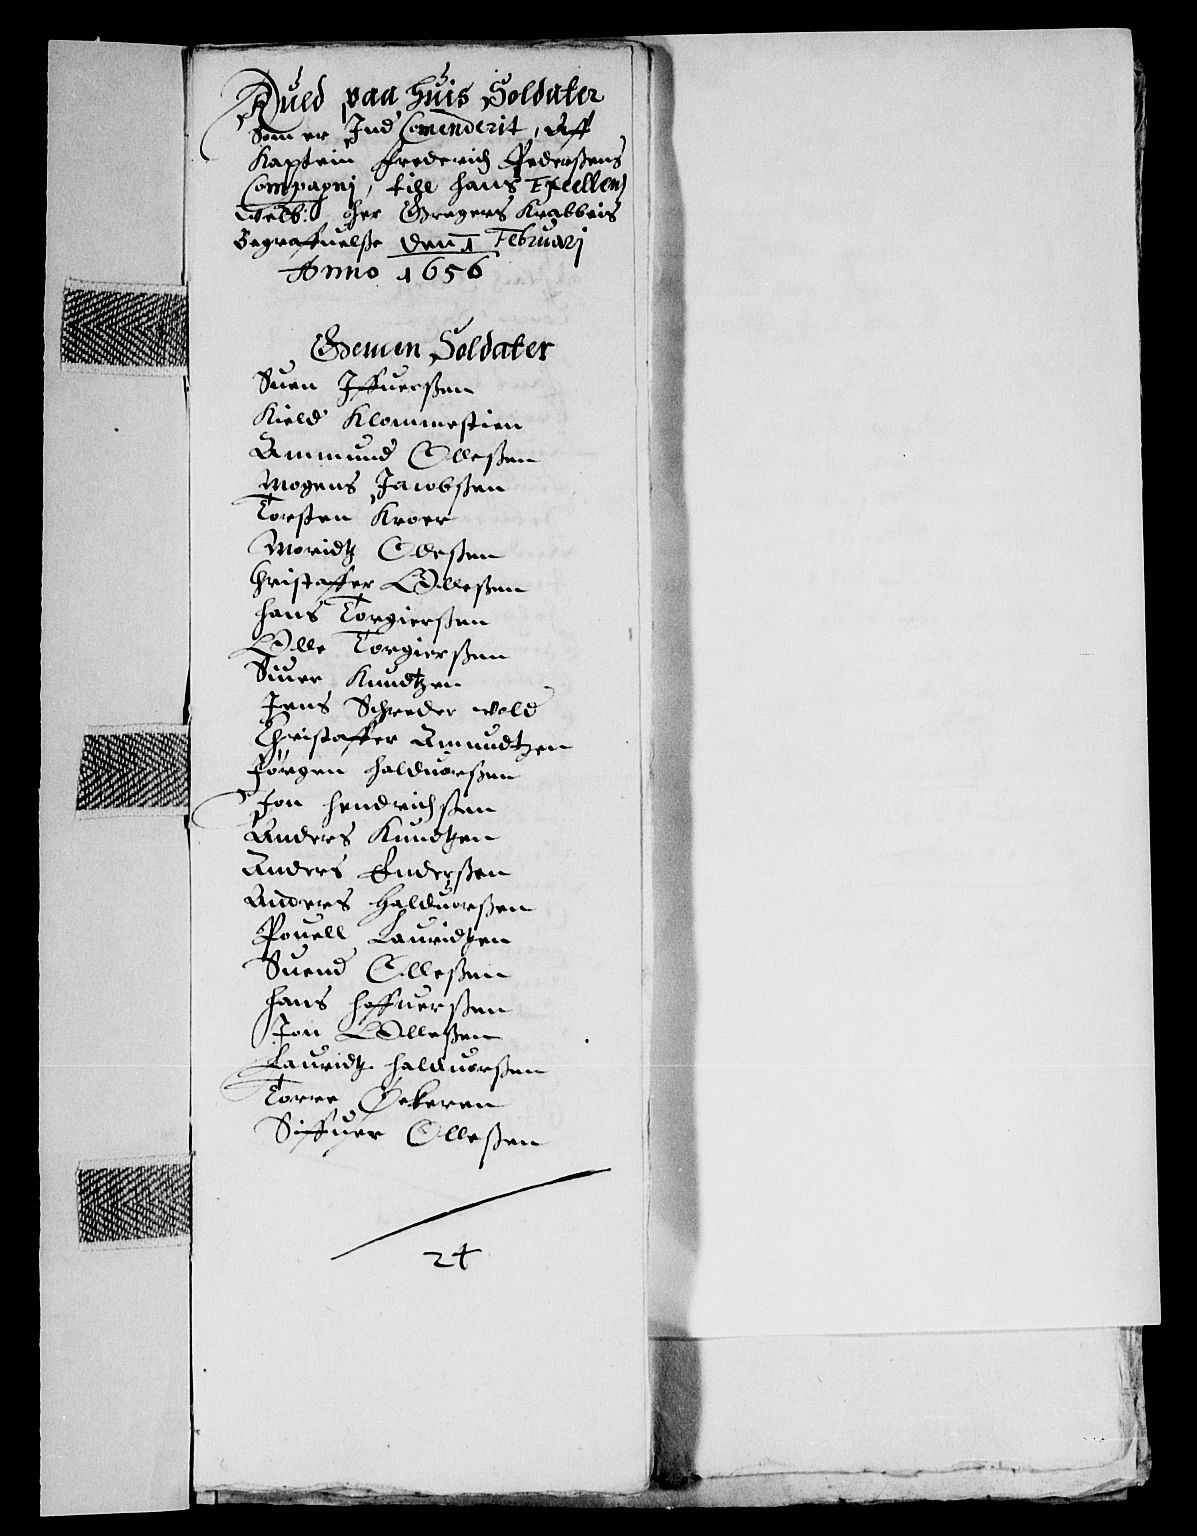 Ruld paa huis Soldater
Som er Ind Comenderit, Aff
Kaptein Frederich Pederßens
Compagnj, till hans Excellens
Welb: Her Gregers Krabbeis
Begraffuelße den 1 Februarj
Anno 1656
Gemen Soldater
Suen Iffuerßen
Kield Klommestien
Ammund Olleßen
Mogens Jacobßen
Torsten Kroer
Moridtz Olleßen
Christaffer Olleßen
Hans Torgierßen
Olle Torgierßen
Siuer Knudtzen
Jens Schreder wold
Christaffer Amundtzen
Jørgen Halduorßen
Jon Hendrichßen
Anders Knudtzen
Anders Enderßen
Anders Halduorßen
Pouell Lauridtzen
Suend Olleßen
Hans Hoffuerßen
Jon Olleßen
Lauridtz Halduorßen
Torre Øekeren
Siffuer Olleßen
24